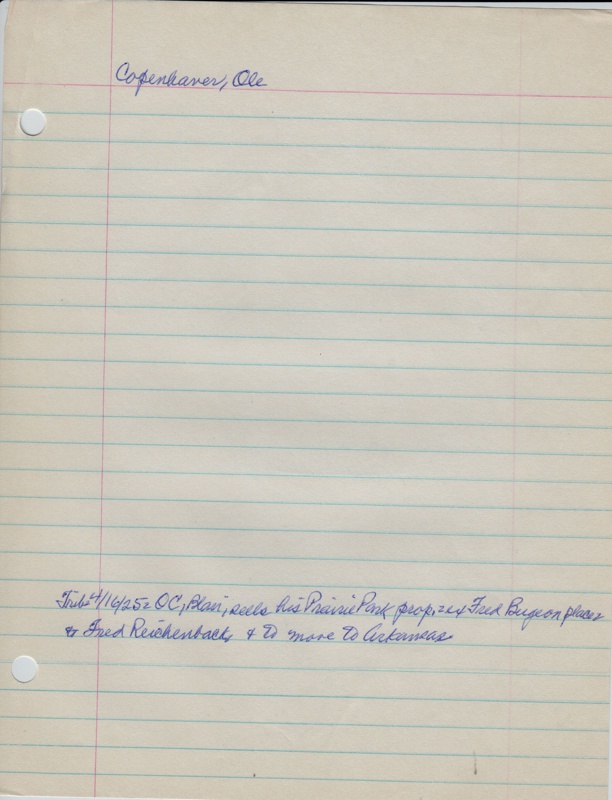 Copenhaver, Ole
Trib 4/16/25= OC, Blair, sells his Prairie Park prop, = ex Fred Bugeon place=
to Fred Reichenbach, & to move to Arkansas